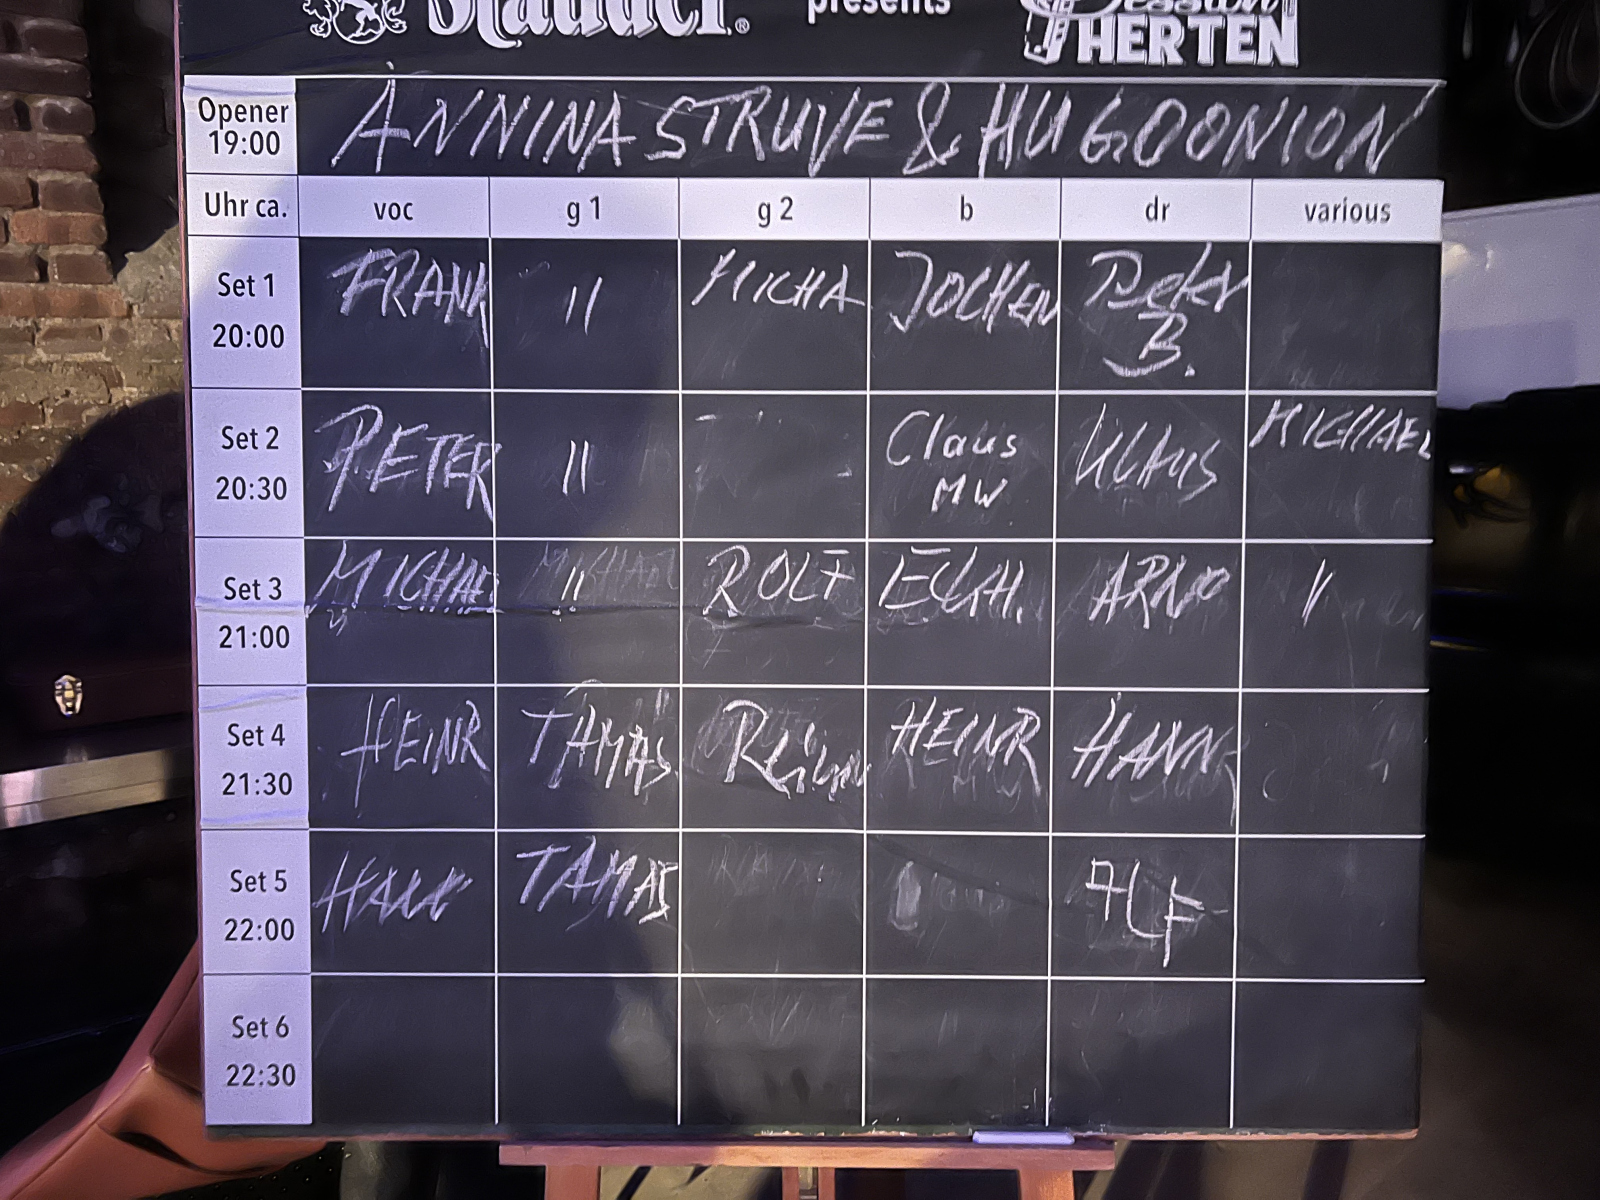 Stauder® presents Session HERTEN
Opener 19:00 ANNINA STRUVE & HUGOONION
Uhr ca. voc g 1 g 2 b dr various
Set 1 20:00 FRANK II MICHA JOCHEN Peter B.
Set 2 20:30 PETER II Claus MW KLAUS MICHAEL
Set 3 21:00 MICHAEL II ROLF ECKH. ARNO
Set 4 21:30 HEINR TAMAS HEINR HANN
Set 5 22:00 TAMAS ALF
Set 6 22:30